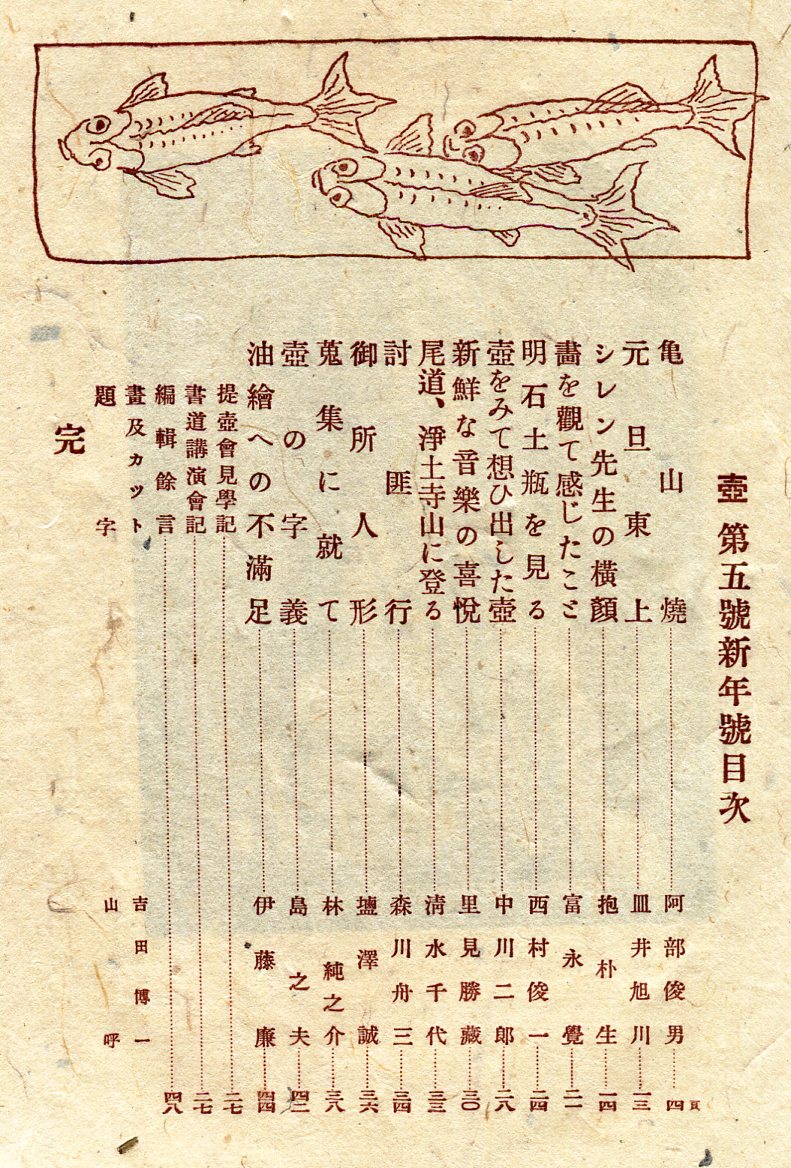 壺 第五號新年號目次
亀山燒 阿部俊男 四頁
元旦東上 皿井旭川 一三
シレン先生の橫顏 抱朴生 一四
畵を觀て感じたこと 富永覺 二一
明石土瓶を見る 西村俊一 二四
壺をみて想ひ出した壺 中川二郎 二八
新鮮な音樂の喜悅 里見勝藏 三〇
尾道、淨土寺山に登る 淸水千代 三三
討匪行 森川舟三 三四
御所人形 鹽澤誠 三六
蒐集に就て 林純之介 三八
壺の字義 島之夫 四二
油繪への不滿足 伊藤廉 四四
提壺會見學記 二七
書道講演會記 二七
編輯餘言 四八
畫及カット 吉田博一
題字 山呼
完